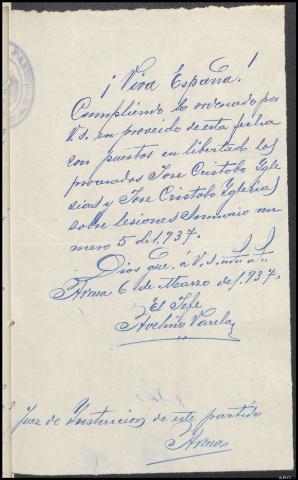 ¡Viva España!
Cumpliendo lo ordenado por
V.S. en proveido de esta fecha
son puestos en libertad los
procesados Jose Cristobo Igle
sias y Jose Cristobo Iglesias
sobre lesiones Sumario nu
mero 5 de 1,937.
Dios gue. á V.S. mu. a.
Arzua 6 de Marzo de 1,937.
El Jefe
Avelino Varela
Juez de Instrucion de este partido
Arzua